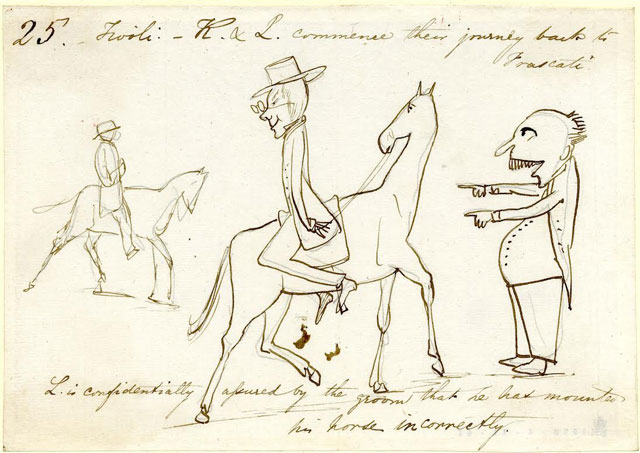 25. - Tivoli. - K. & L. commence their journey back to
Frascati.
L. is confidentially assured by the groom that he has mounted
his horse incorrectly.